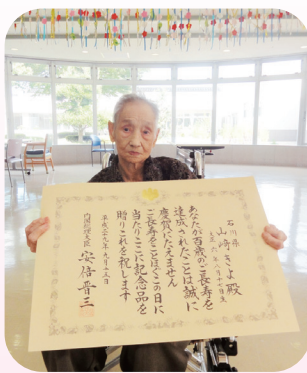 石川県
山崎きよ殿
あなたが百歳のご長寿を
達成されたことは誠に
慶賀にたえません
ご長寿をことほぐこの日に
当たりここに記念品を
贈りこれを祝します
平成二十九年九月十五日
内閣総理大臣 安倍晋三